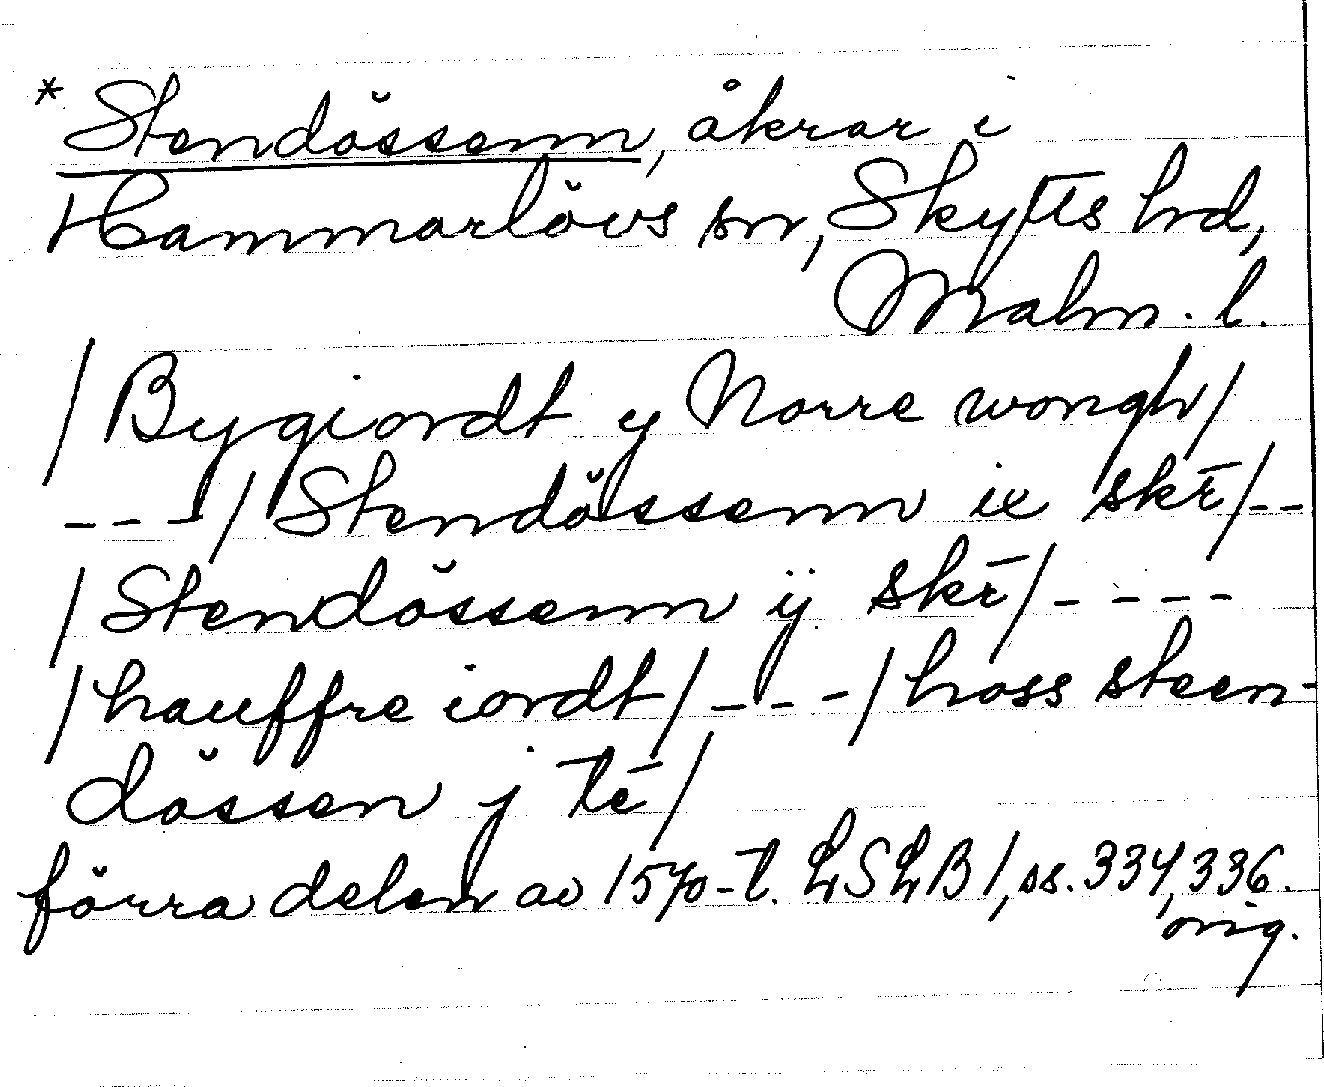 *Stendŏssenn, åkrar i
Hammarlŏvs sn, Skytts hrd,
Malm. l.
/ Bygiordt y Norre wongh /
- - - / Stendŏssenn ix skr̄ / - -
/ Stendŏssenn ij skr̄ / - - - -
/ hauffre iordt / - - - / hoss steen-
dŏssen j tē /
förra delen av 1570-t. LSLB 1, ss. 334, 336.
orig.